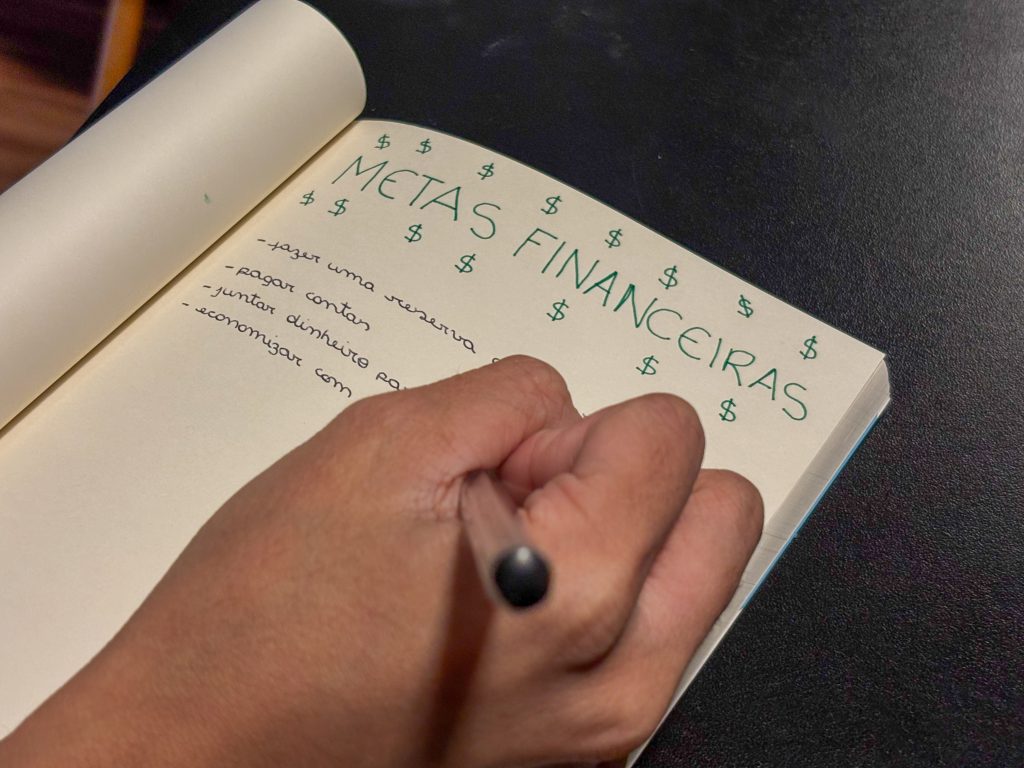 $ $ $ $ $ $ $ $
METAS FINANCEIRAS
$ $ $ $ $ $ $
- fazer uma reserva
- pagar contas
- juntar dinheiro
- economizar com